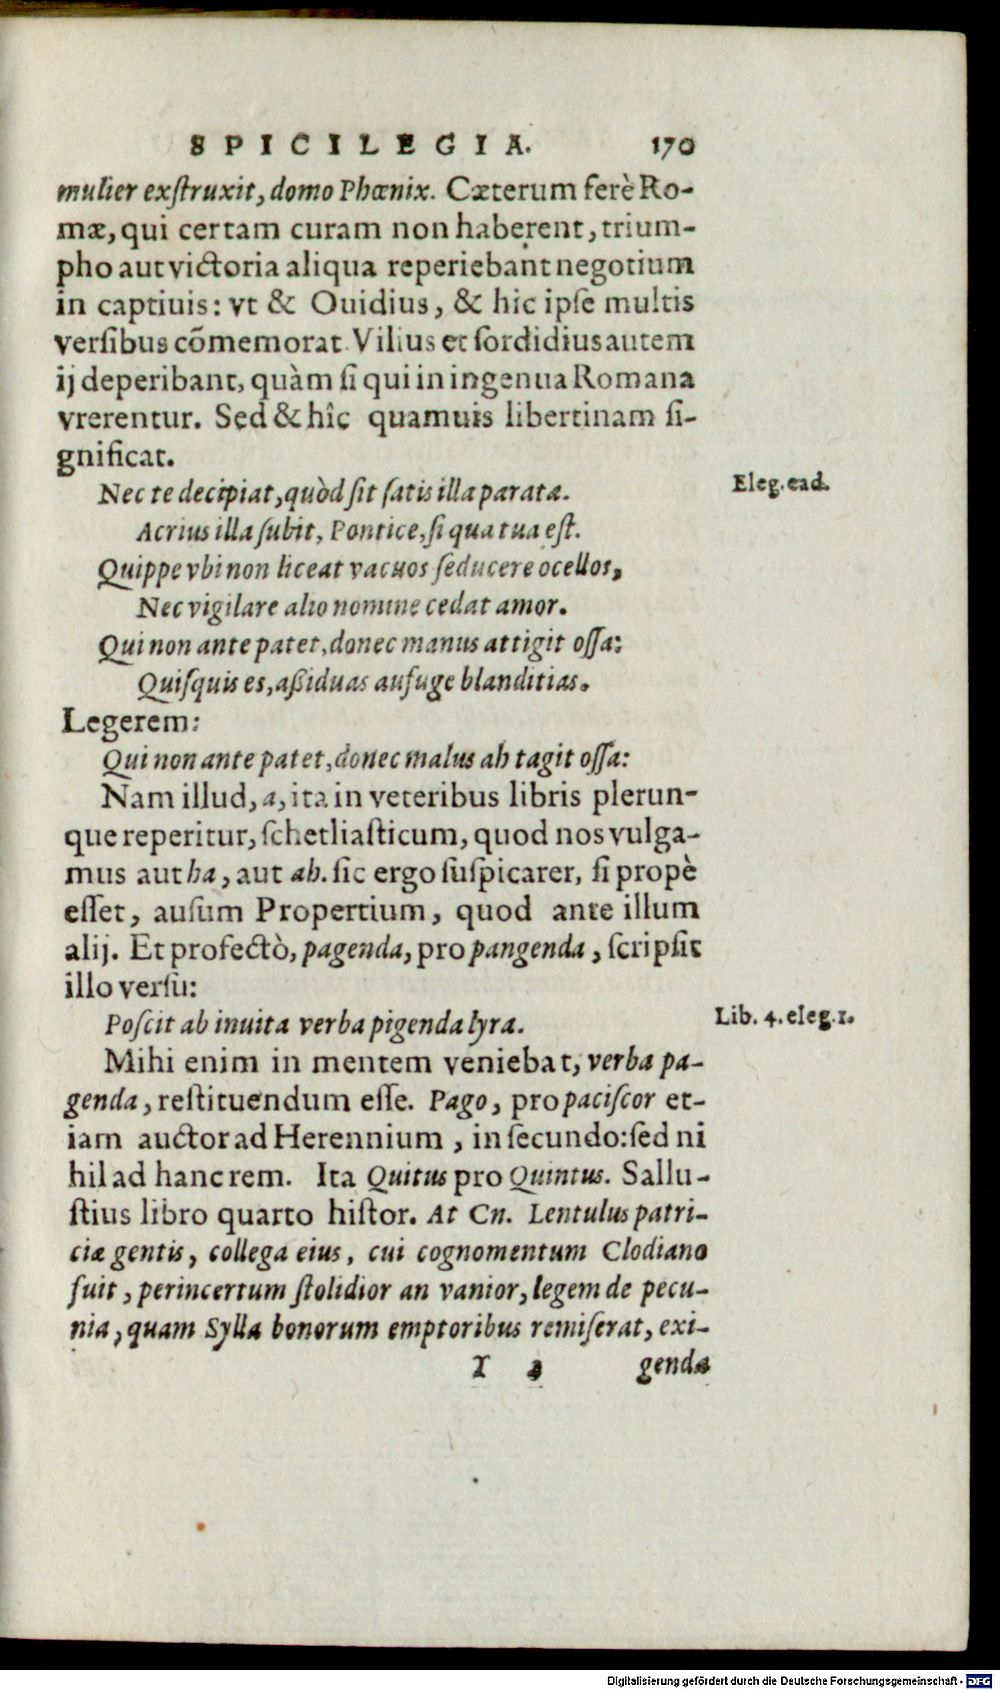 SPICILEGIA. 170
mulier exſtruxit, domo Phœnix. Cæterum ferè Ro-
mæ, qui certam curam non haberent, trium-
pho aut victoria aliqua reperiebant negotium
in captiuis: vt & Ouidius, & hic ipſe multis
verſibus cõmemorat. Vilius et ſordidius autem
ij deperibant, quàm ſi qui in ingenua Romana
vrerentur. Sed & hîc quamuis libertinam ſi-
gnificat.
Nec te decipiat, quòd ſit ſatis illa parata. Eleg. ead.
Acrius illa ſubit, Pontice, ſi qua tua eſt.
Quippe vbi non liceat vacuos ſeducere ocellos,
Nec vigilare alio nomine cedat amor.
Qui non ante patet, donec manus attigit oſſa:
Quiſquis es, aßiduas aufuge blanditias.
Legerem:
Qui non ante patet, donec malus ah tagit oſſa:
Nam illud, a, ita in veteribus libris plerun-
que reperitur, ſchetliaſticum, quod nos vulga-
mus aut ha, aut ah. ſic ergo ſuſpicarer, ſi propè
eſſet, auſum Propertium, quod ante illum
alij. Et profectò, pagenda, pro pangenda, ſcripſit
illo verſu:
Poſcit ab inuita verba pigenda lyra. Lib. 4. eleg. 1.
Mihi enim in mentem veniebat, verba pa-
genda, reſtituendum eſſe. Pago, pro paciſcor et-
iam auctor ad Herennium, in ſecundo: ſed ni
hil ad hanc rem. Ita Quitus pro Quintus. Sallu-
ſtius libro quarto hiſtor. At Cn. Lentulus patri-
ciæ gentis, collega eius, cui cognomentum Clodiano
fuit, perincertum ſtolidior an vanior, legem de pecu-
nia, quam Sylla bonorum emptoribus remiſerat, exi-
Y 2 genda
Digitalisierung gefördert durch die Deutsche Forschungsgemeinschaft - DFG